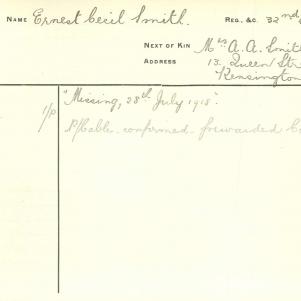 NAME Ernest Cecil Smith. REG. &C. 32nd
NEXT OF KIN Mrs A. A. Smith
ADDRESS 13. Queen Str
Kensington
"Missing, 28th July 1918".
1/P P/Cable confirmed forwarded